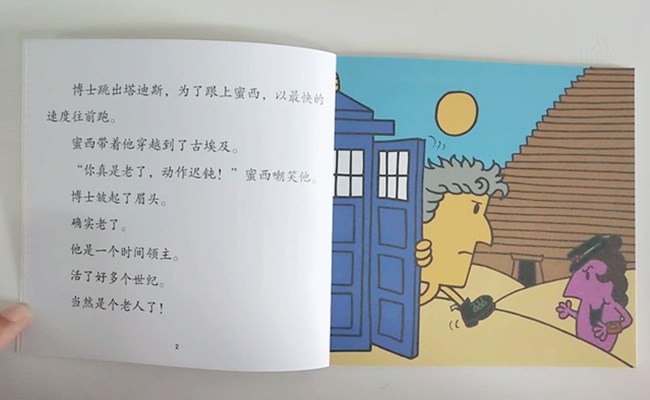 博士跳出塔迪斯，为了跟上蜜西，以最快的
速度往前跑。
蜜西带着他穿越到了古埃及。
“你真是老了，动作迟钝！”蜜西嘲笑他。
博士皱起了眉头。
确实老了。
他是一个时间领主。
活了好多个世纪。
当然是个老人了！
2